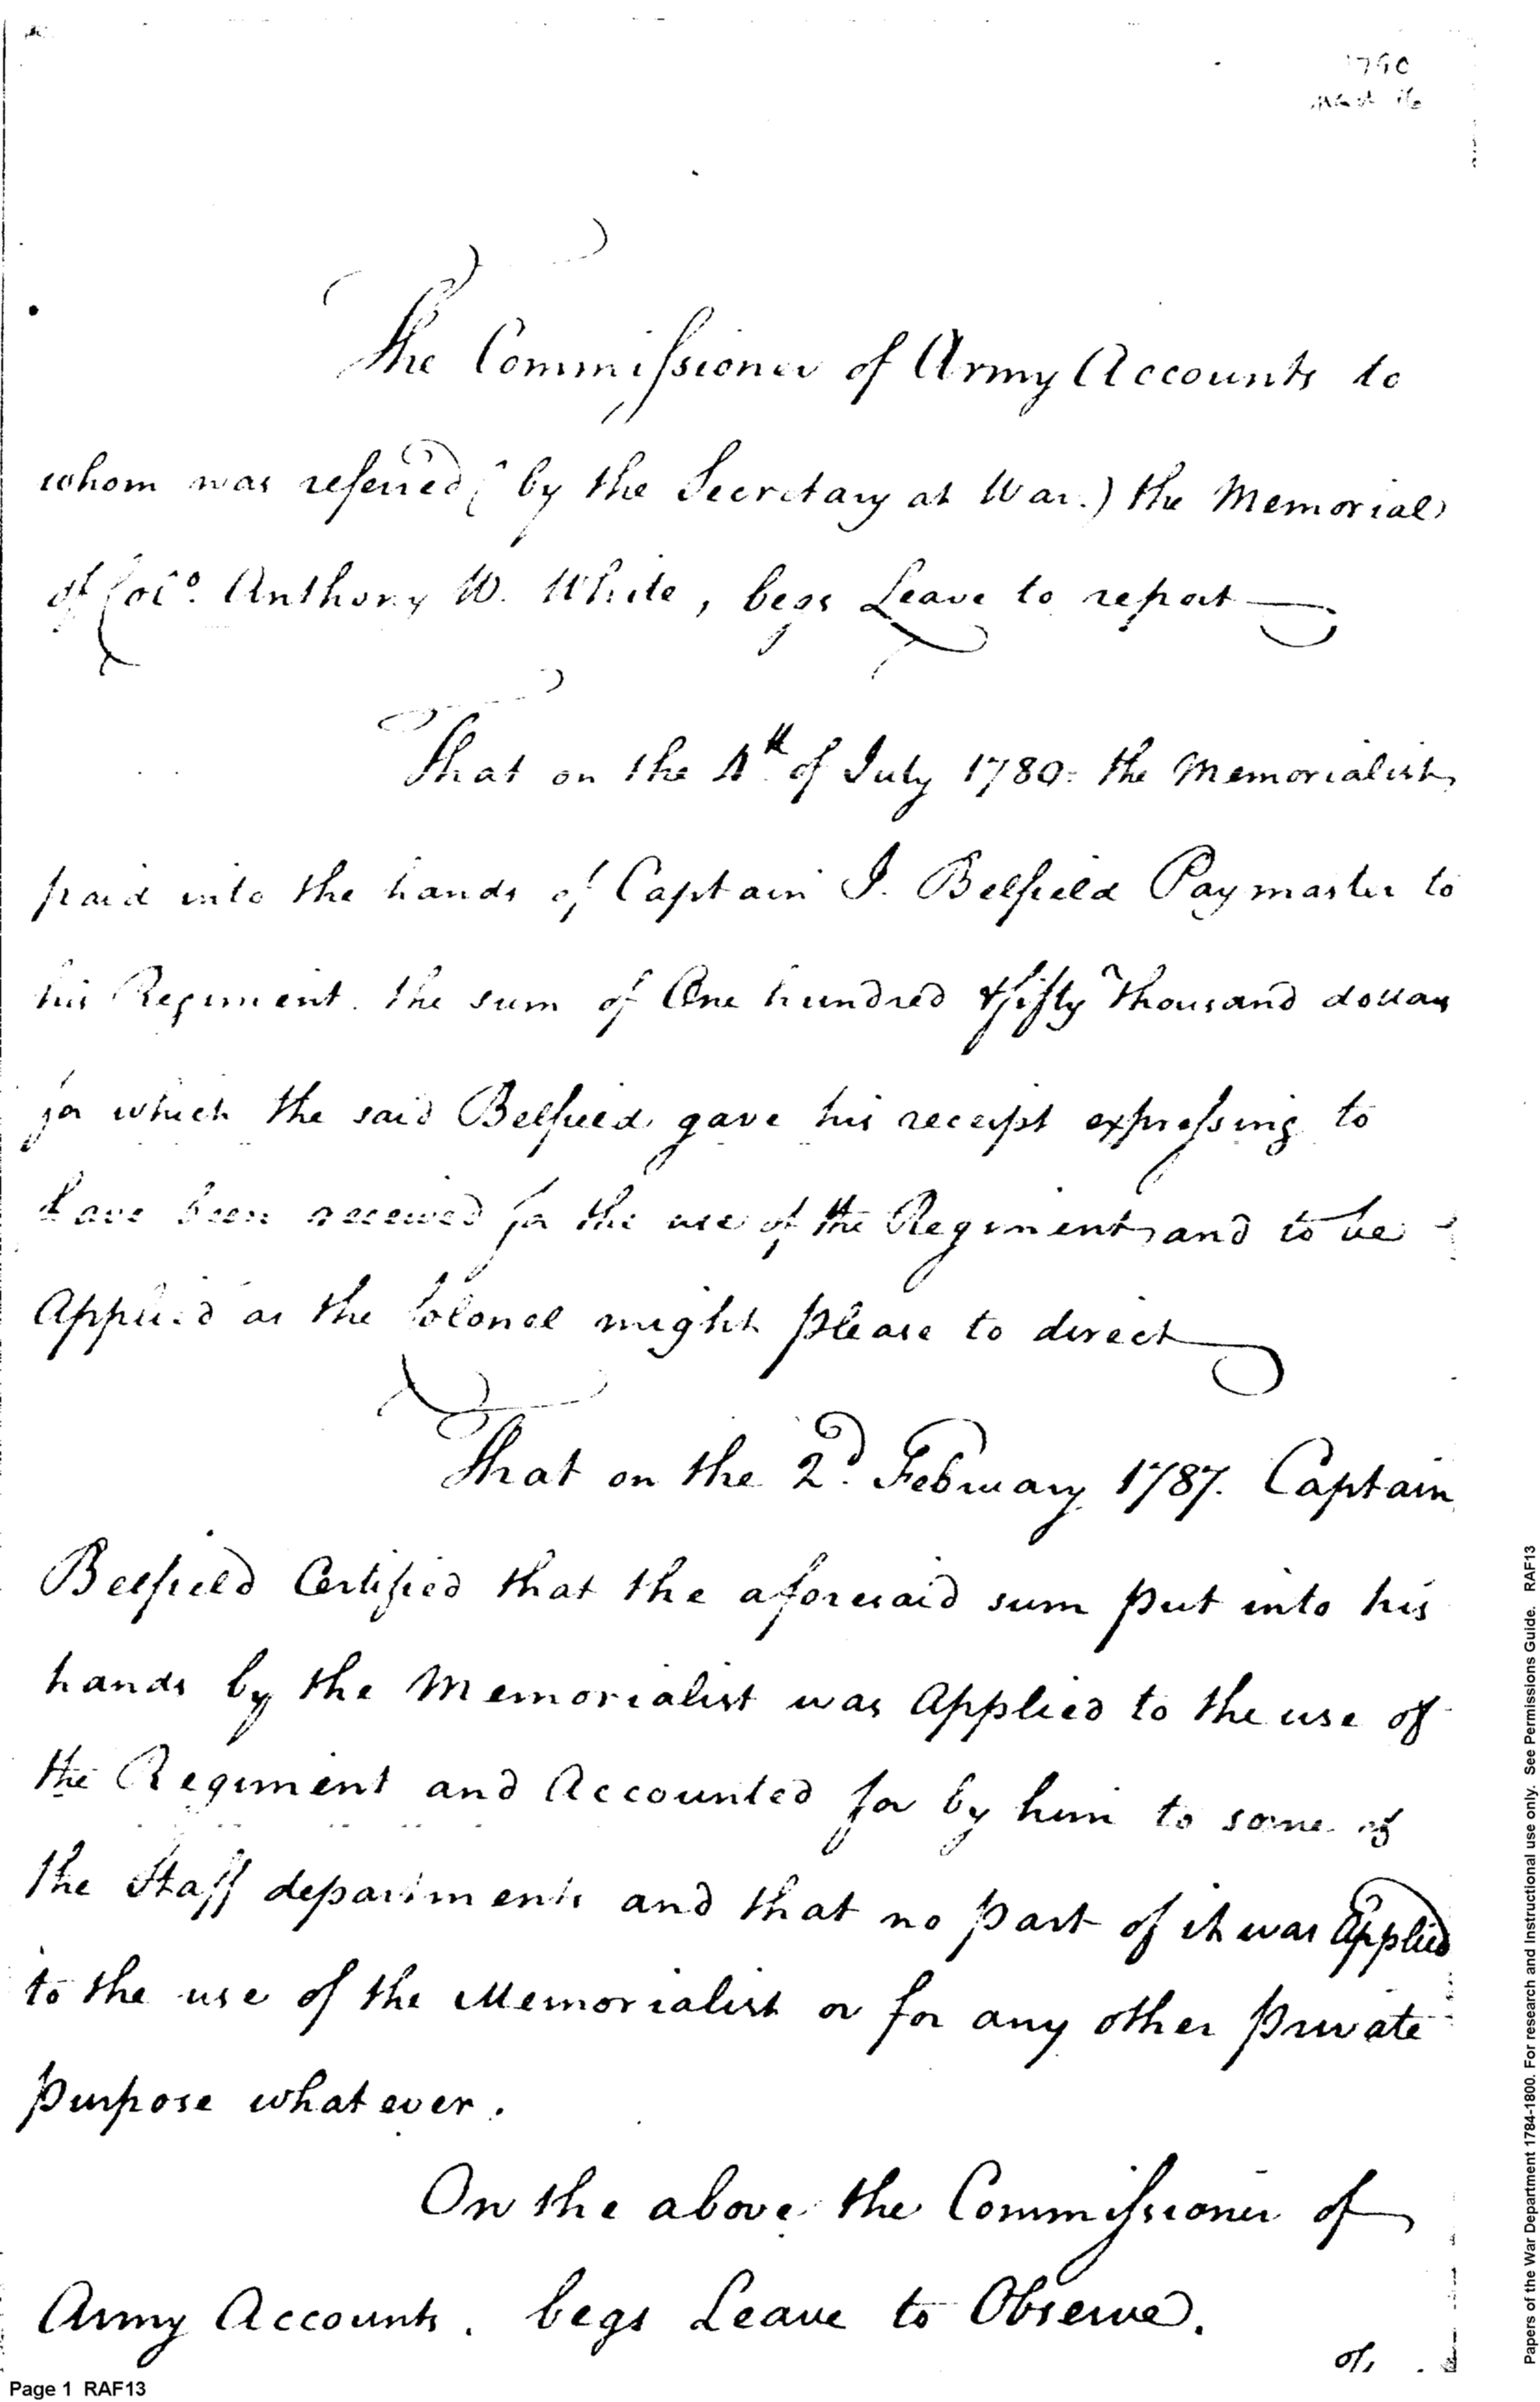 1790
The Commissioner of Army Accounts to
whom was referred (by the Secretary at War.) the Memorial
of Colo. Anthony W. White, begs Leave to report
That on the 4th of July 1780. the Memorialist
paid into the hands of Captain J. Belfield Paymaster to
his Regiment. the sum of One hundred & fifty Thousand dollars
for which the said Belfield gave his receipt expressing to
have been received for the use of the Regiment, and to be
Applied as the Colonel might please to direct
That on the 2d. February 1787. Captain
Belfield Certified that the aforesaid sum put into his
hands by the Memorialist was applied to the use of
the Regiment and Accounted for by him to some of
the Staff departments and that no part of it was Applied
to the use of the Memorialist or for any other private
purpose whatever.
On the above the Commissioner of
Army Accounts. begs Leave to Observe.
Page 1 RAF13
Papers of the War Department 1784-1800. For research and Instructional use only. See Permissions Guide. RAF13